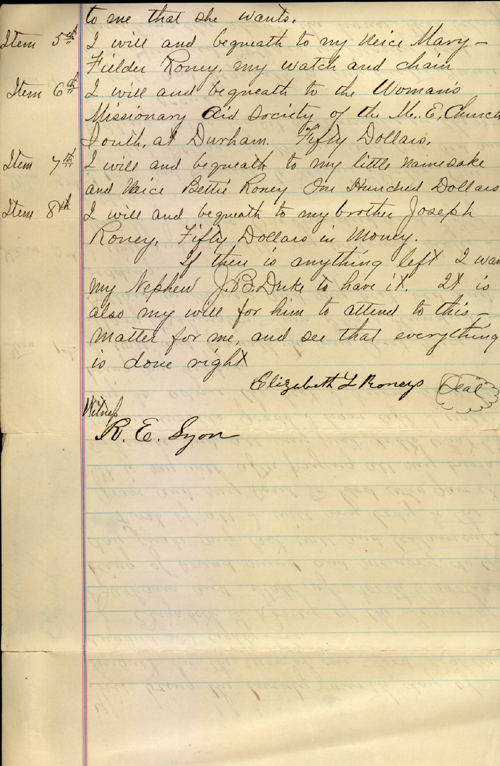 to me that she wants.
Item 5th I will and bequeath to my Neice Mary
Fielder Roney, my watch and chain
Item 6th I will and bequeath to the Womans
Missionary Aid Society of the M. E. Church
South, at Durham. Fifty Dollars.
Item 7th I will and bequeath to my little namesake
and Neice Bettie Roney One Hundred Dollars
Item 8th I will and bequeath to my brother Joseph
Roney, Fifty Dollars in Money.
If there is anything left I wan
my Nephew J. B. Duke to have it. It is
also my will for him to attend to this
matter for me, and see that everything
is done right
Elizabeth L Roneys Seal
Witness
R. E. Lyon